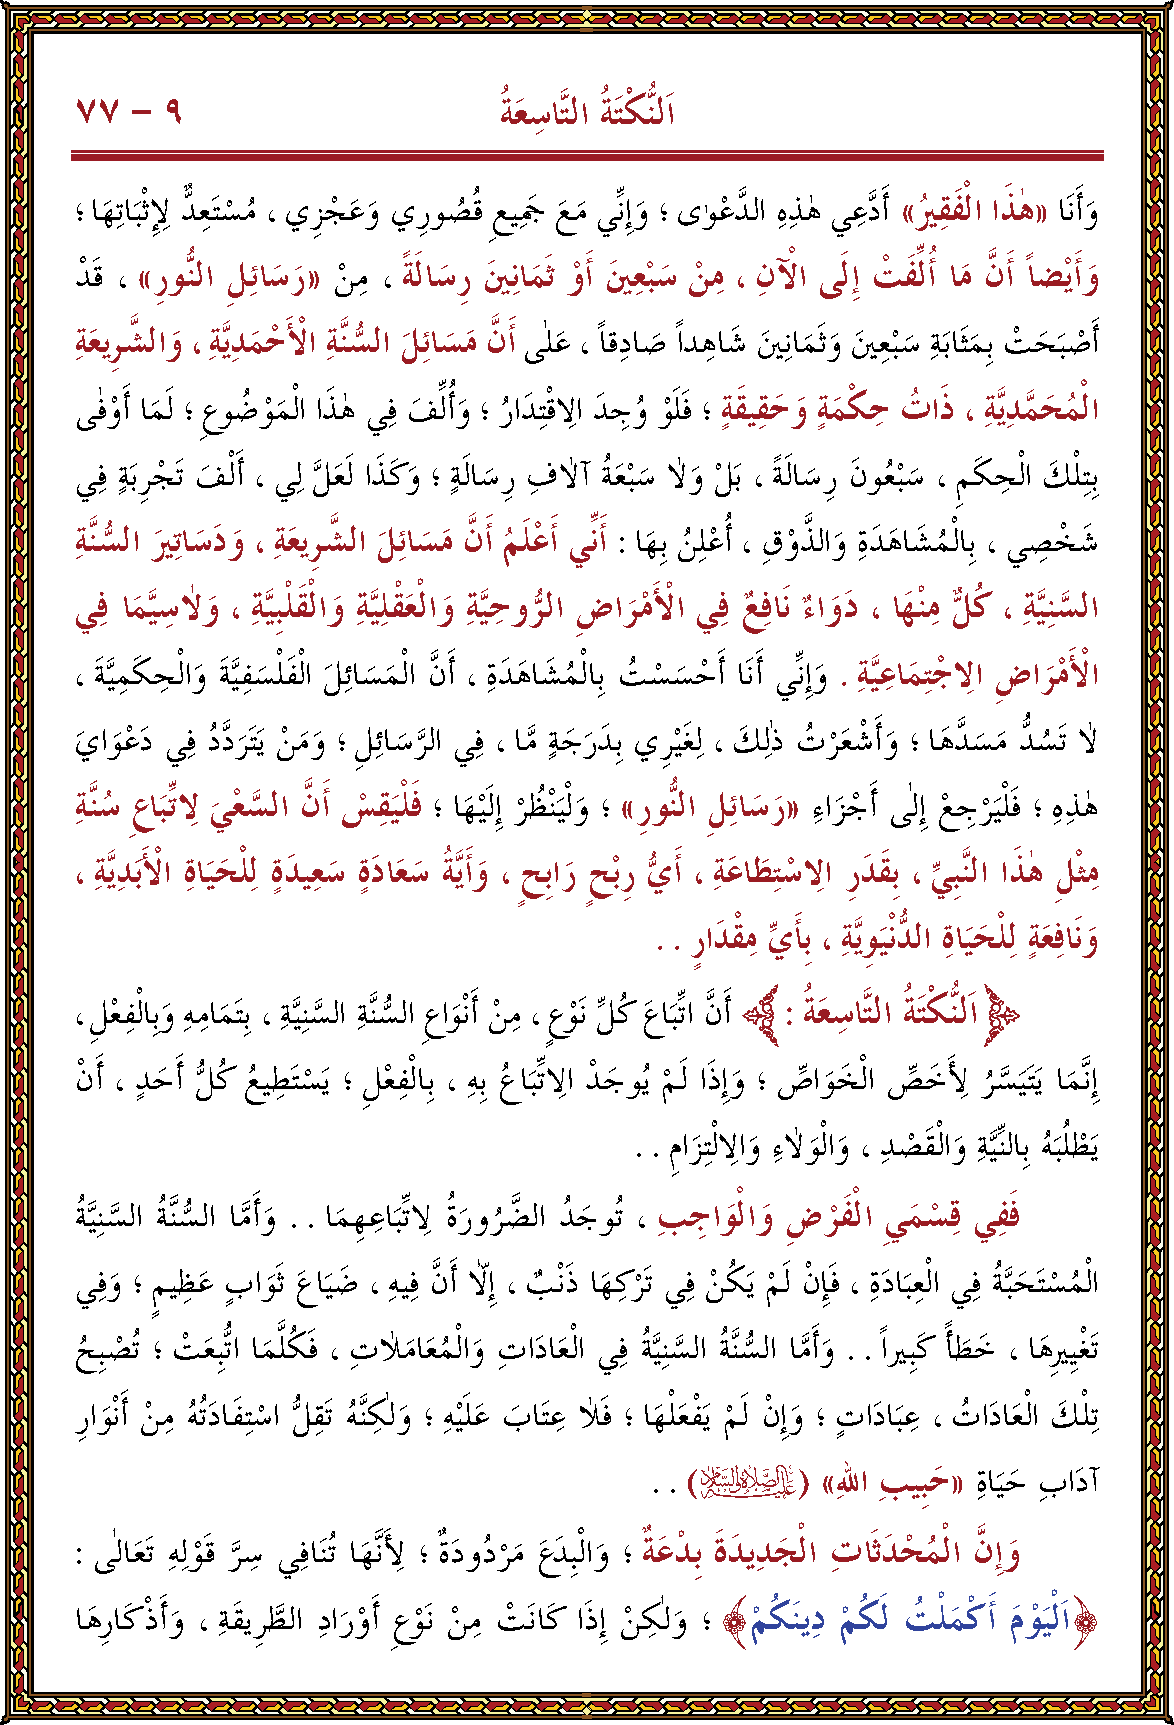 اَلنُّكْتَةُ التَّاسِعَةُ ٩ – ٧٧
وَأَنَا «هٰذَا الْفَقِيْرُ» أَدَّعِي هٰذِهِ الدَّعْوٰى ؛ وَإِنِّي مَعَ جَمِيْعِ قُصُورِي وَعَجْزِي ، مُسْتَعِدٌّ لِإِثْبَاتِهَا ؛
وَأَيْضاً أَنَّ مَا أُلِّفَتْ إِلَى الْآنِ ، مِنْ سَبْعِيْنَ أَوْ ثَمَانِيْنَ رِسَالَةً ، مِنْ «رَسَائِلِ النُّورِ» ، قَدْ
أَصْبَحَتْ بِمَثَابَةِ سَبْعِيْنَ وَثَمَانِيْنَ شَاهِداً صَادِقاً ، عَلٰى أَنَّ مَسَائِلَ السُّنَّةِ الْأَحْمَدِيَّةِ ، وَالشَّرِيعَةِ
الْمُحَمَّدِيَّةِ ، ذَاتُ حِكْمَةٍ وَحَقِيقَةٍ ؛ فَلَوْ وُجِدَ الِاقْتِدَارُ ؛ وَأُلِّفَ فِي هٰذَا الْمَوْضُوعِ ؛ لَمَا أَوْفٰى
بِتِلْكَ الْحِكَمِ ، سَبْعُونَ رِسَالَةً ، بَلْ وَلَا سَبْعَةُ آلَافِ رِسَالَةٍ ؛ وَكَذَا لَعَلَّ لِي ، أَلْفَ تَجْرِبَةٍ فِي
شَخْصِي ، بِالْمُشَاهَدَةِ وَالذَّوْقِ ، أُعْلِنُ بِهَا : أَنِّي أَعْلَمُ أَنَّ مَسَائِلَ الشَّرِيعَةِ ، وَدَسَاتِيَرَ السُّنَّةِ
السَّنِيَّةِ ، كُلٌّ مِنْهَا ، دَوَاءٌ نَافِعٌ فِي الْأَمْرَاضِ الرُّوحِيَّةِ وَالْعَقْلِيَّةِ وَالْقَلْبِيَّةِ ، وَلَاسِيَّمَا فِي
الْأَمْرَاضِ الِاجْتِمَاعِيَّةِ . وَإِنِّي أَنَا أَحْسَسْتُ بِالْمُشَاهَدَةِ ، أَنَّ الْمَسَائِلَ الْفَلْسَفِيَّةَ وَالْحِكَمِيَّةَ ،
لَا تَسُدُّ مَسَدَّهَا ؛ وَأَشْعَرْتُ ذٰلِكَ ، لِغَيْرِي بِدَرَجَةٍ مَّا ، فِي الرَّسَائِلِ ؛ وَمَنْ يَتَرَدَّدُ فِي دَعْوَايَ
هٰذِهِ ؛ فَلْيَرْجِعْ إِلٰى أَجْزَاءِ «رَسَائِلِ النُّورِ» ؛ وَلْيَنْظُرْ إِلَيْهَا ؛ فَلْيَقِسْ أَنَّ السَّعْيَ لِاتِّبَاعِ سُنَّةِ
مِثْلِ هٰذَا النَّبِيِّ ، بِقَدَرِ الِاسْتِطَاعَةِ ، أَيُّ رِبْحٍ رَابِحٍ ، وَأَيَّةُ سَعَادَةٍ سَعِيدَةٍ لِلْحَيَاةِ الْأَبَدِيَّةِ ،
وَنَافِعَةٍ لِلْحَيَاةِ الدُّنْيَوِيَّةِ ، بِأَيِّ مِقْدَارٍ . .
﴿اَلنُّكْتَةُ التَّاسِعَةُ :﴾ أَنَّ اتِّبَاعَ كُلِّ نَوْعٍ ، مِنْ أَنْوَاعِ السُّنَّةِ السَّنِيَّةِ ، بِتَمَامِهِ وَبِالْفِعْلِ ،
إِنَّمَا يَتَيَسَّرُ لِأَخَصِّ الْخَوَاصِّ ؛ وَإِذَا لَمْ يُوجَدْ الِاتِّبَاعُ بِهِ ، بِالْفِعْلِ ؛ يَسْتَطِيعُ كُلُّ أَحَدٍ ، أَنْ
يَطْلُبَهُ بِالنِّيَّةِ وَالْقَصْدِ ، وَالْوَلَاءِ وَالِالْتِزَامِ . .
فَفِي قِسْمَيِ الْفَرْضِ وَالْوَاجِبِ ، تُوجَدُ الضَّرُورَةُ لِاتِّبَاعِهِمَا . . وَأَمَّا السُّنَّةُ السَّنِيَّةُ
الْمُسْتَحَبَّةُ فِي الْعِبَادَةِ ، فَإِنْ لَمْ يَكُنْ فِي تَرْكِهَا ذَنْبٌ ، إِلَّا أَنَّ فِيهِ ، ضَيَاعَ ثَوَابٍ عَظِيمٍ ؛ وَفِي
تَغْيِيرِهَا ، خَطَأً كَبِيراً . . وَأَمَّا السُّنَّةُ السَّنِيَّةُ فِي الْعَادَاتِ وَالْمُعَامَلَاتِ ، فَكُلَّمَا اتُّبِعَتْ ؛ تُصْبِحُ
تِلْكَ الْعَادَاتُ ، عِبَادَاتٍ ؛ وَإِنْ لَمْ يَفْعَلْهَا ؛ فَلَا عِتَابَ عَلَيْهِ ؛ وَلٰكِنَّهُ تَقِلُّ اسْتِفَادَتُهُ مِنْ أَنْوَارِ
آدَابِ حَيَاةِ «حَبِيبِ اللهِ» (عَلَيْهِ الصَّلَاةُ وَالسَّلَامُ) . .
وَإِنَّ الْمُحْدَثَاتِ الْجَدِيدَةَ بِدْعَةٌ ؛ وَالْبِدَعَ مَرْدُودَةٌ ؛ لِأَنَّهَا تُنَافِي سِرَّ قَوْلِهِ تَعَالٰى :
﴿اَلْيَوْمَ أَكْمَلْتُ لَكُمْ دِينَكُمْ﴾ ؛ وَلٰكِنْ إِذَا كَانَتْ مِنْ نَوْعِ أَوْرَادِ الطَّرِيقَةِ ، وَأَذْكَارِهَا